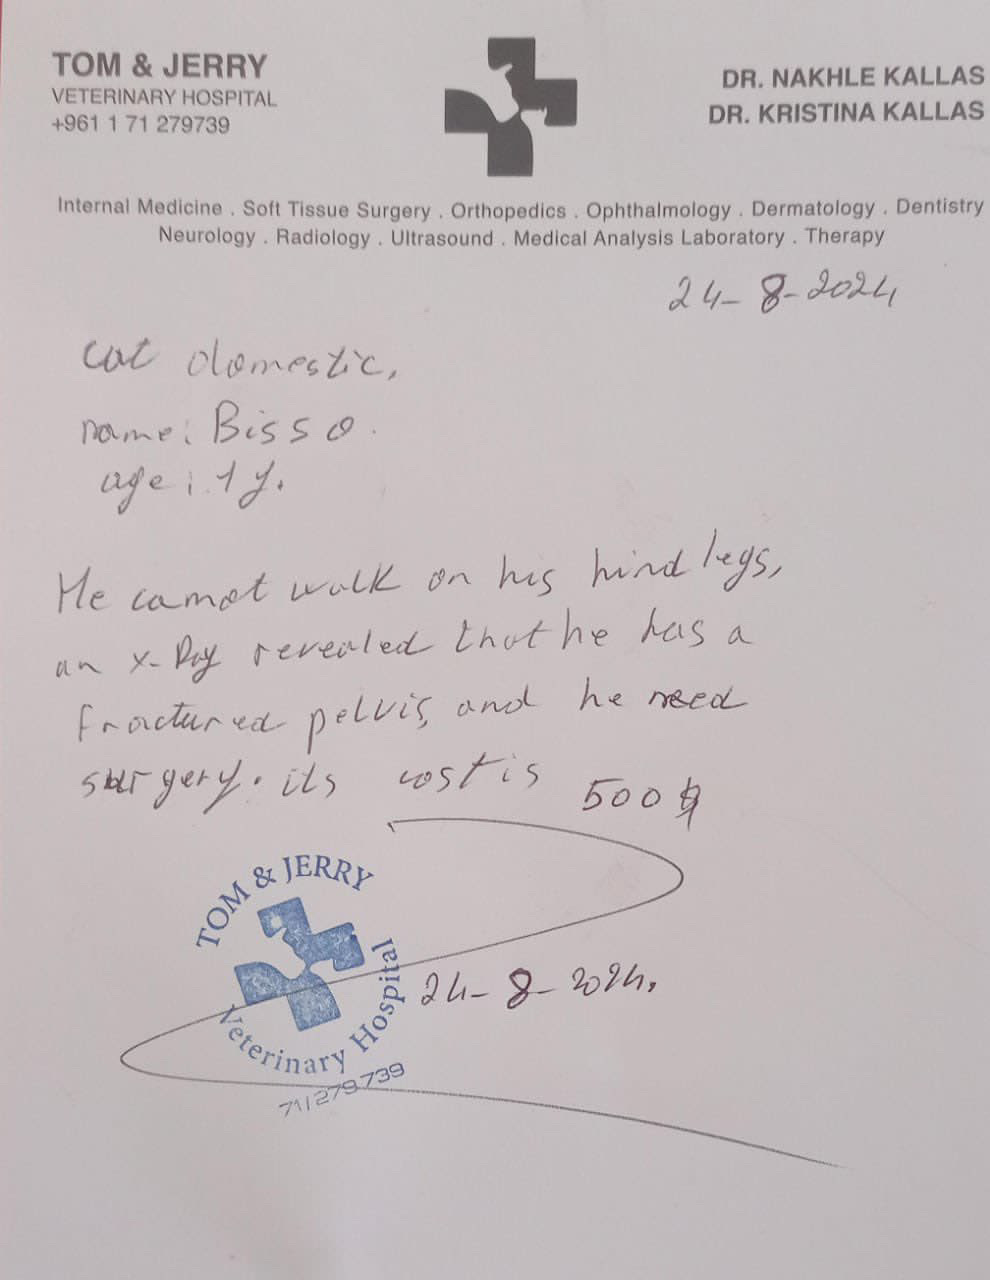 TOM & JERRY
VETERINARY HOSPITAL
+961 1 71 279739
DR. NAKHLE KALLAS
DR. KRISTINA KALLAS
Internal Medicine . Soft Tissue Surgery . Orthopedics . Ophthalmology . Dermatology . Dentistry
Neurology . Radiology . Ultrasound . Medical Analysis Laboratory . Therapy
24-8-2024
cat domestic,
name: Bisso.
age: 1 y.
He cannot walk on his hind legs,
an x-Ray revealed that he has a
fractured pelvis, and he need
surgery. its cost is 500$
TOM & JERRY
Veterinary Hospital
71/279739
24-8-2024.